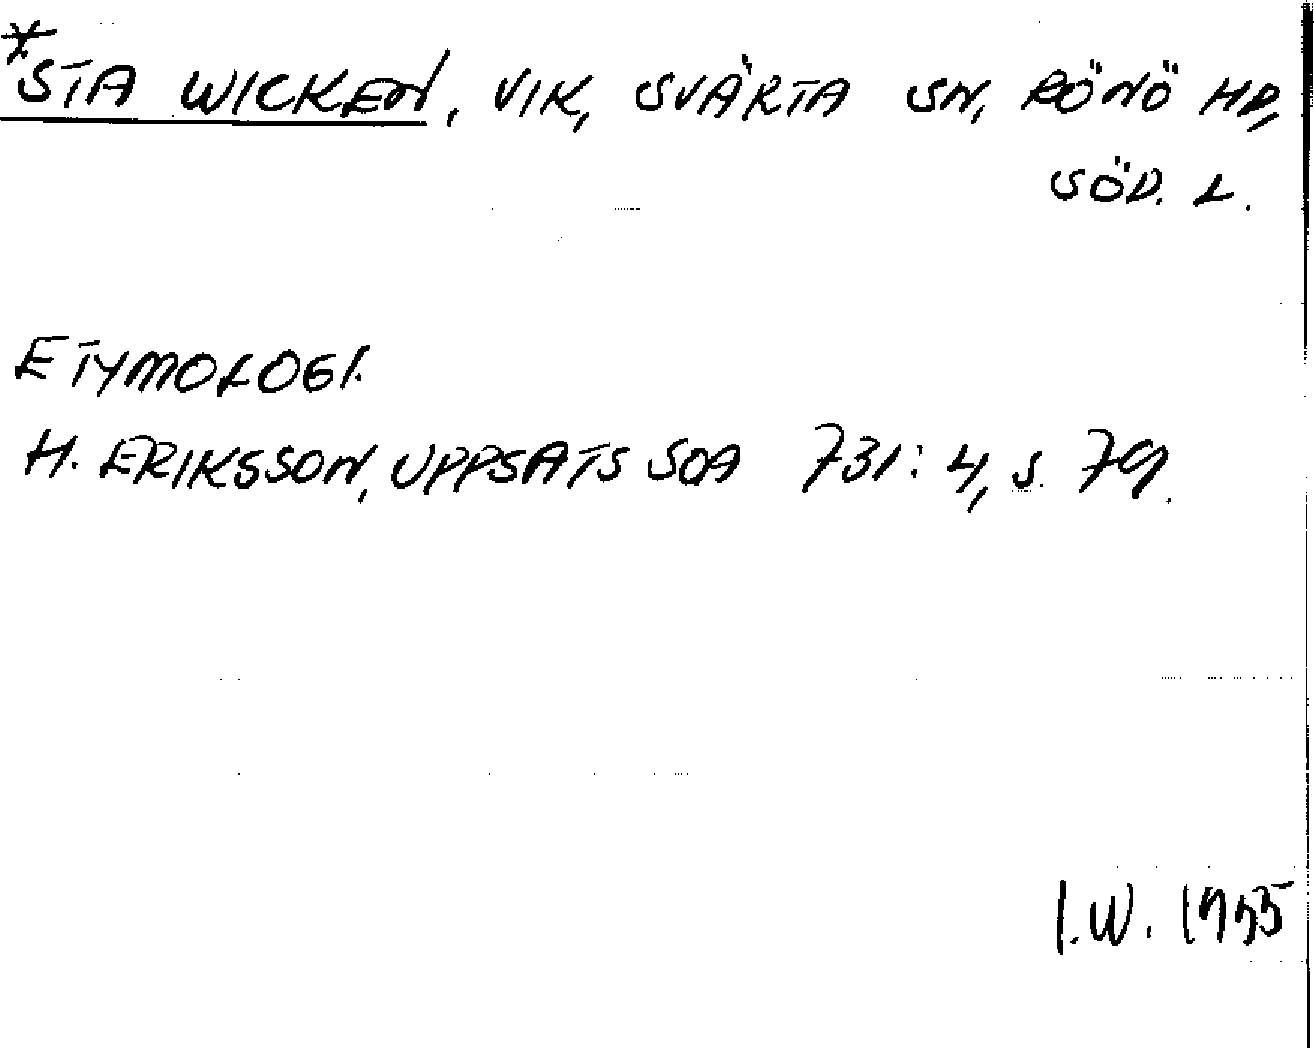 *STA WICKEN, VIK, SVÄRTA SN, RÖNÖ HD,
SÖD. L.
ETYMOLOGI.
H. ERIKSSON, UPPSATS SOA 731:4, S. 79.
I.W. 1955